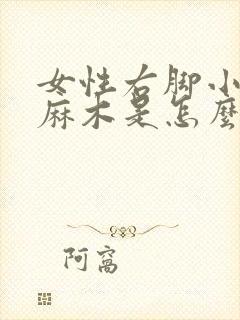 女性右脚小
麻木是怎麼
阿窩